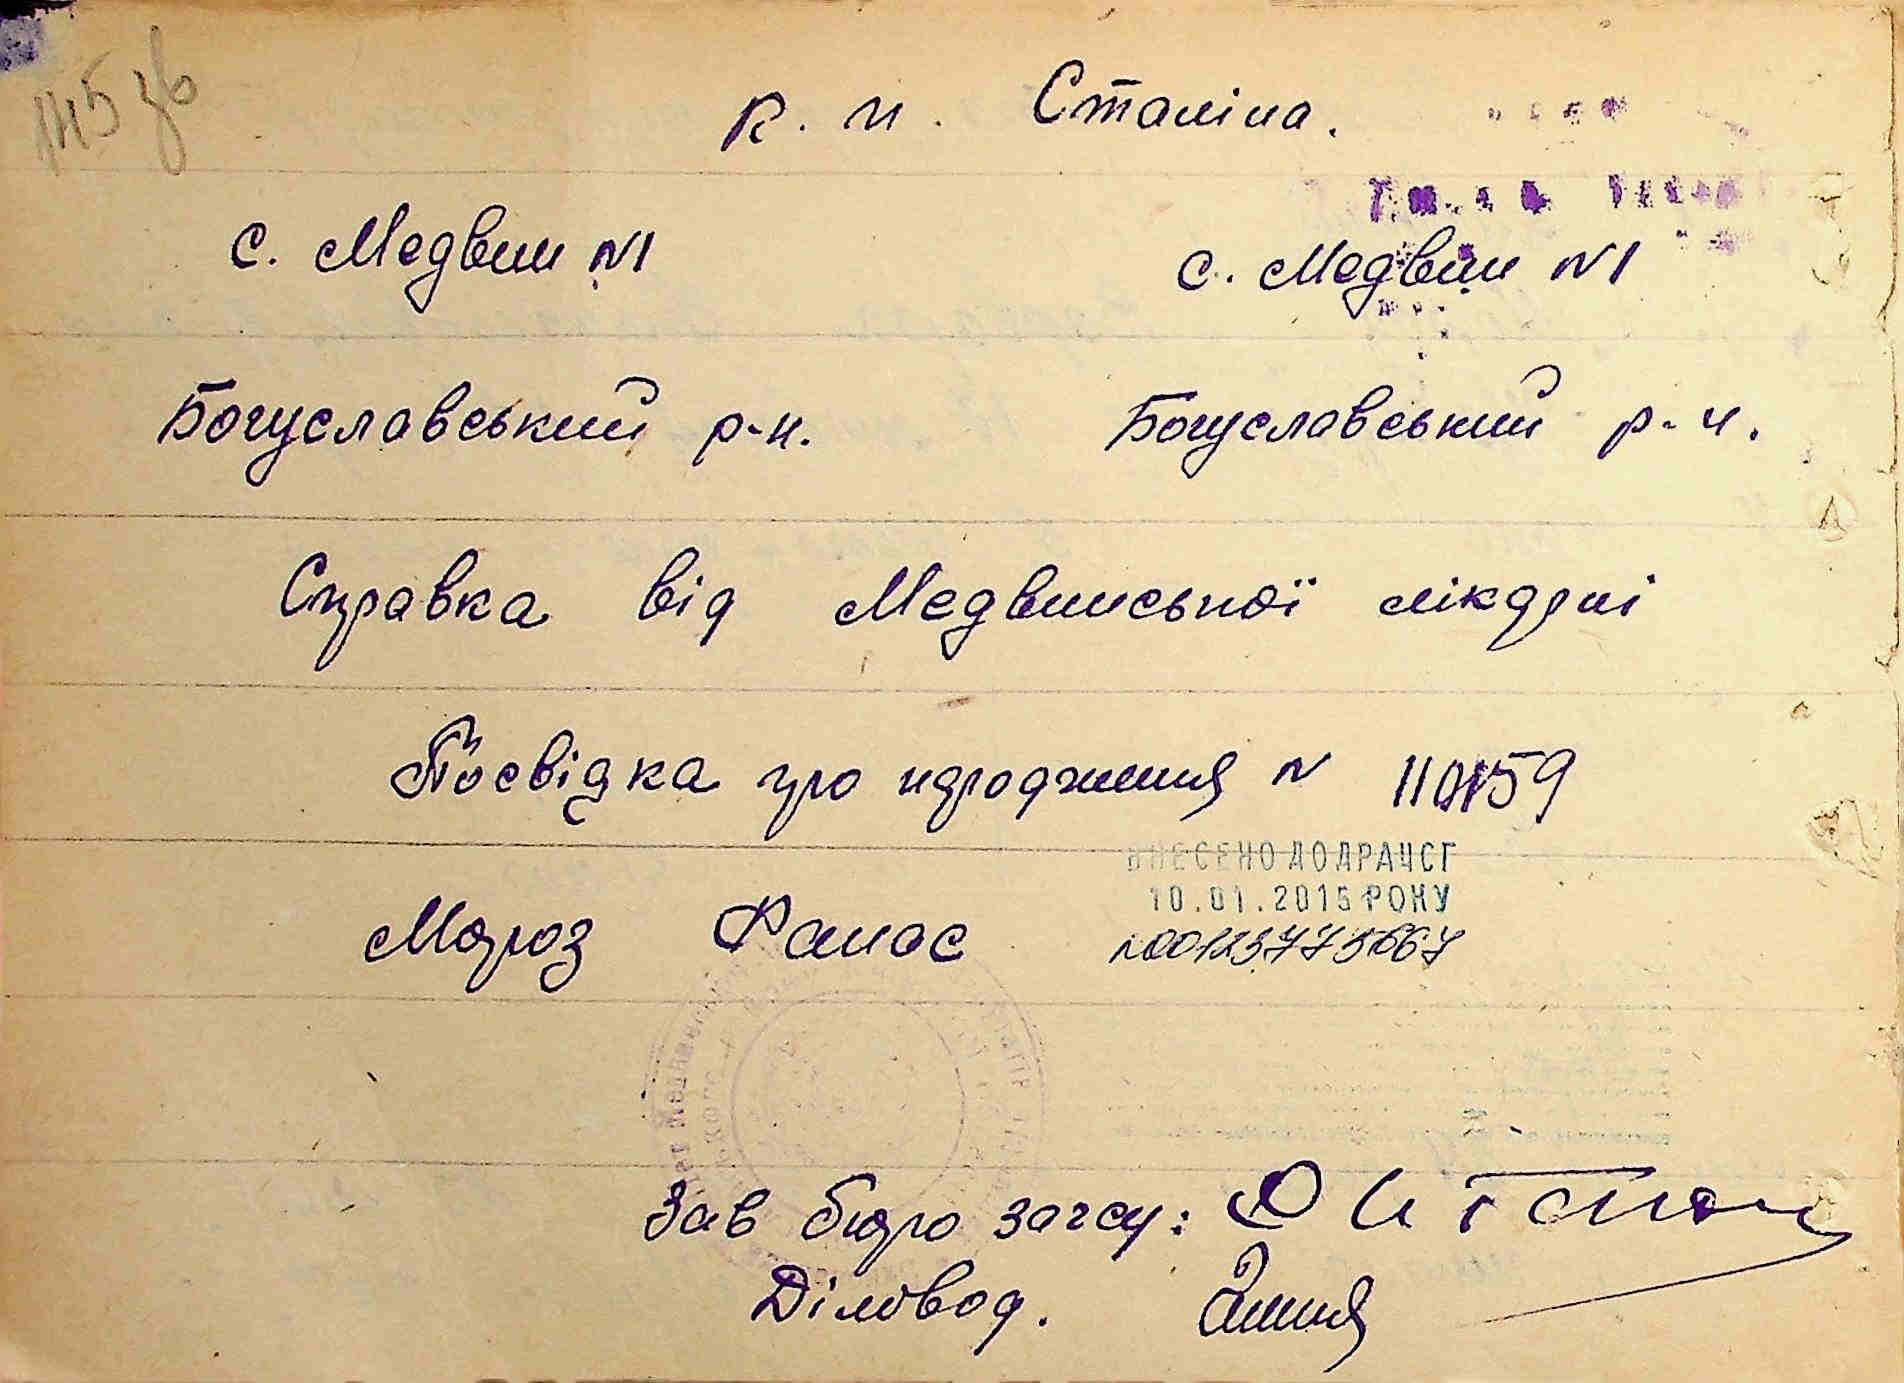 145 зв
к. и. Сталіна.
с. Медвин №1 с. Медвин №1
Богуславський р-н. Богуславський р-н.
Справка від Медвинської лікарні
Посвідка про народження №
Мороз Фанас
ВНЕСЕНО ДО ДРАЦСГ
10.01.2015 РОКУ
№00123775667
Зав бюро загсу:
Діловод.